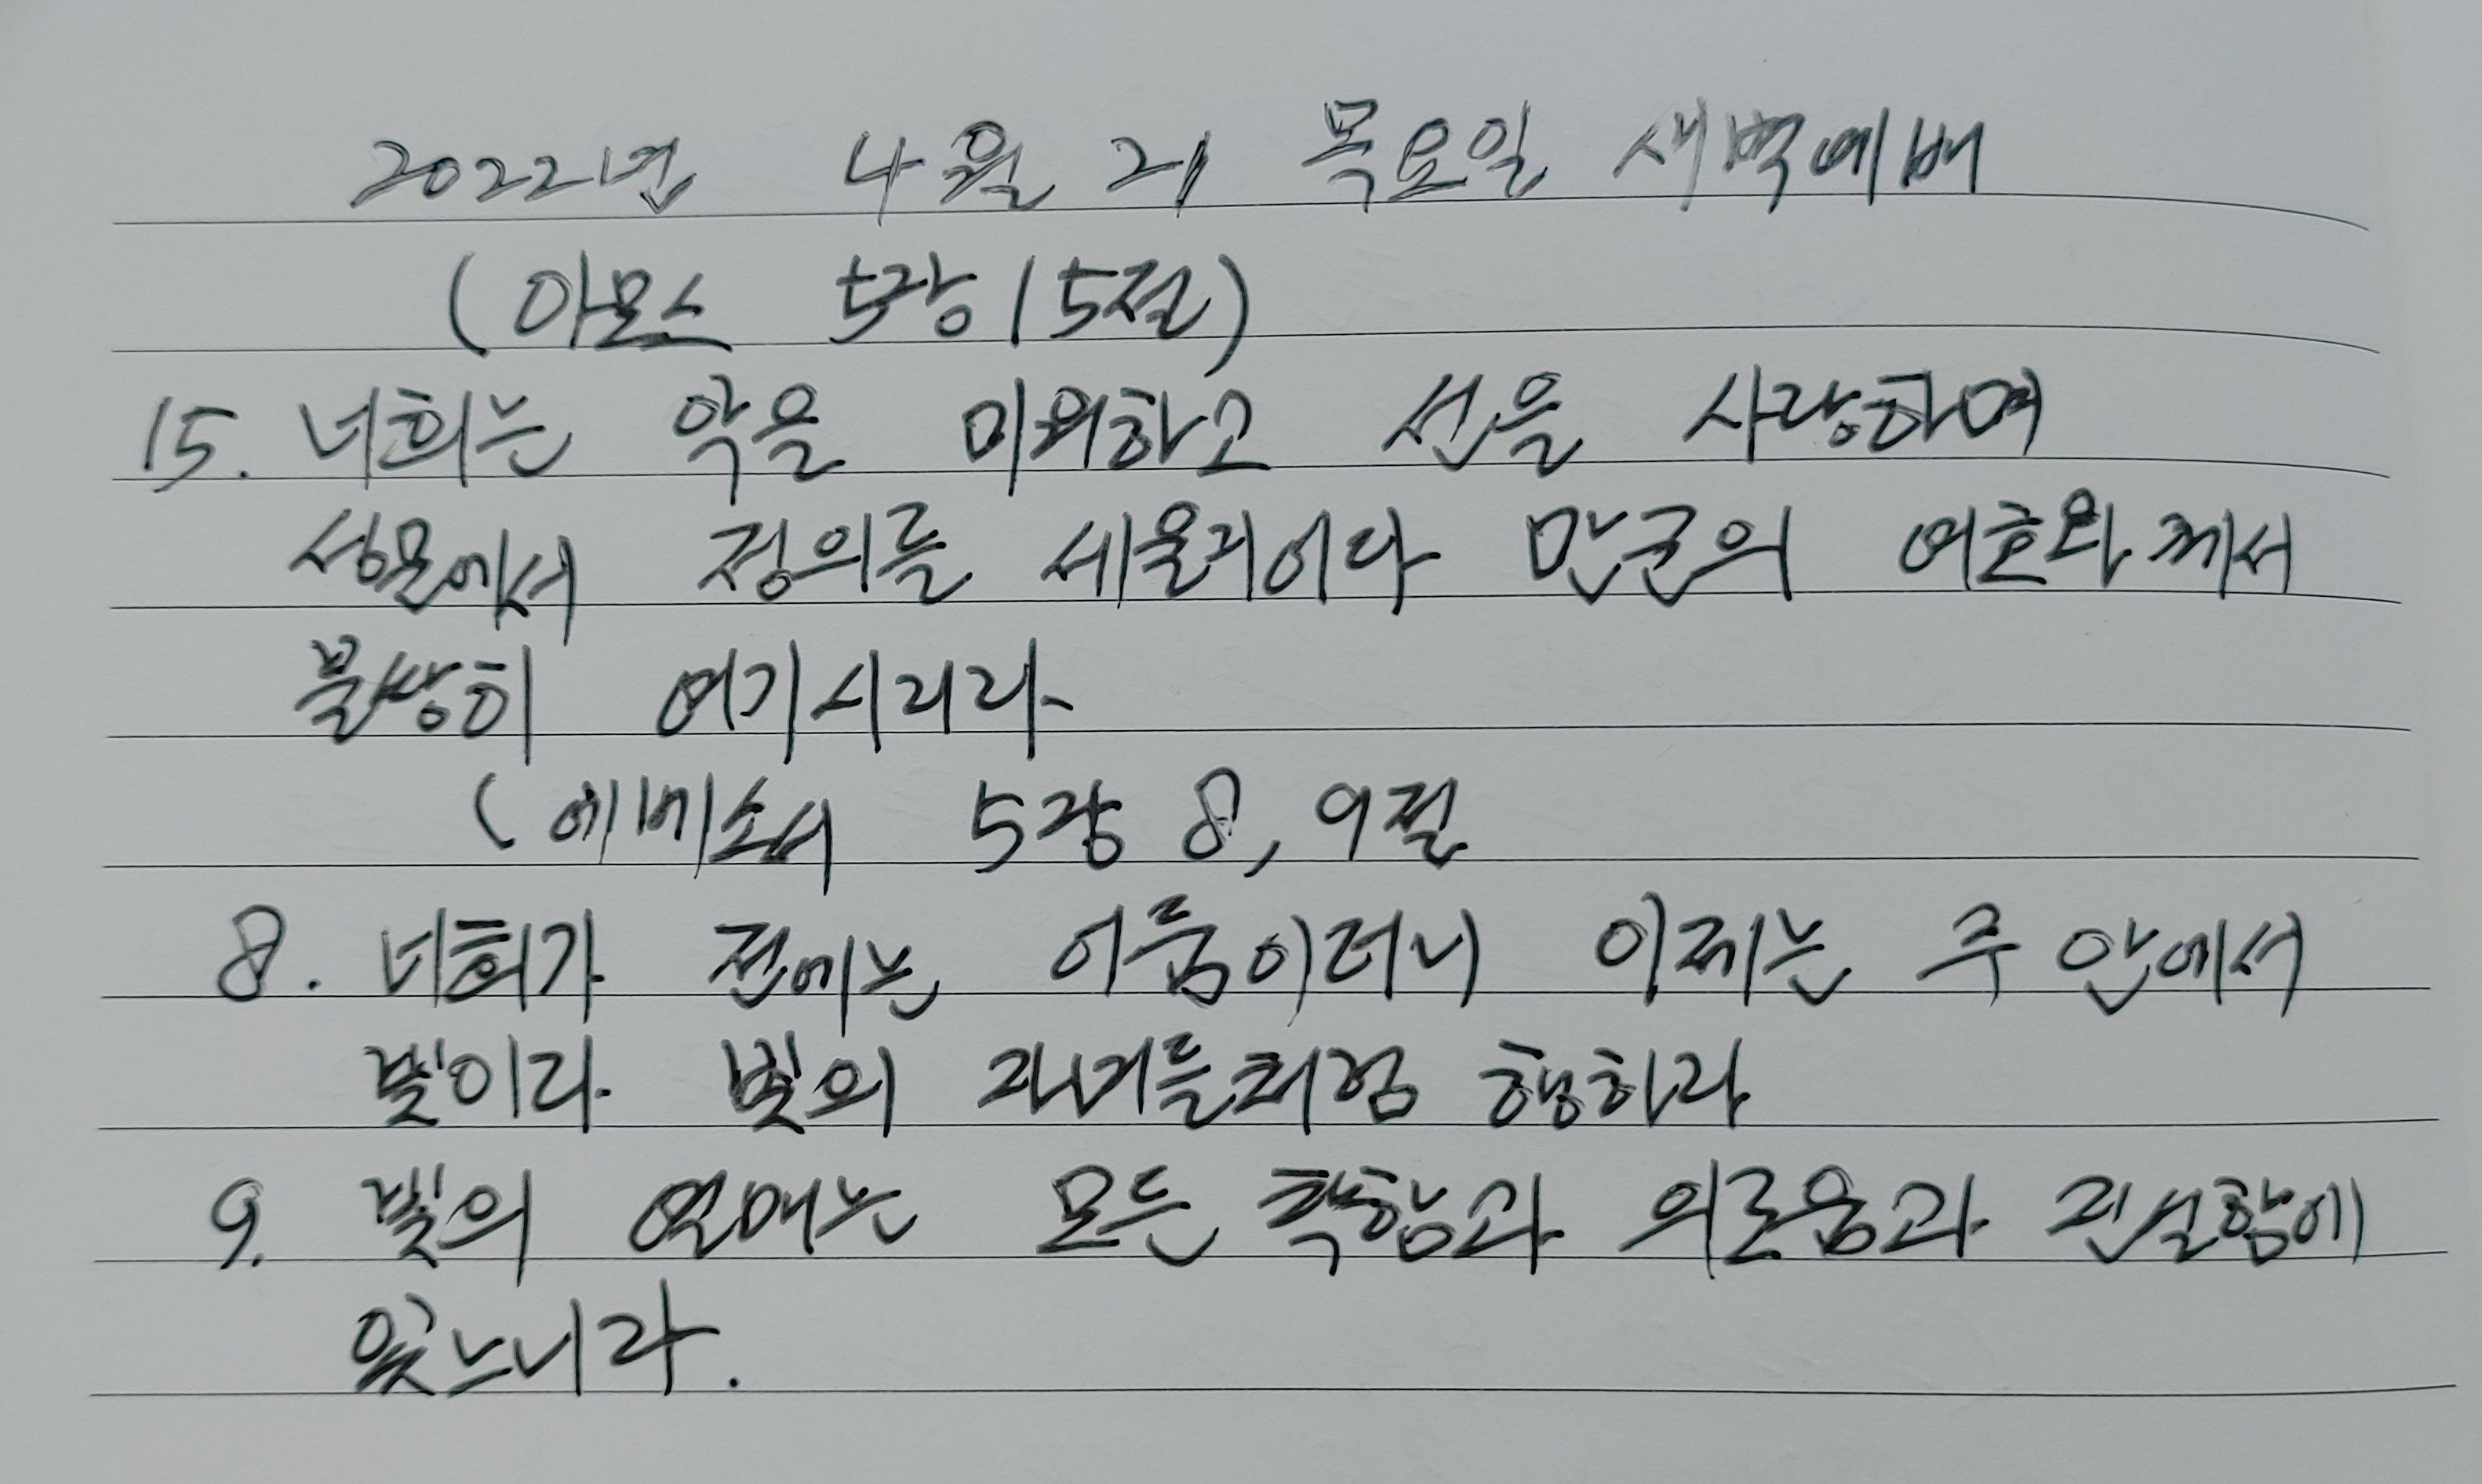 2022년 4월 21 목요일 새벽예배
(아모스 5장 15절)
15. 너희는 악을 미워하고 선을 사랑하며
성문에서 정의를 세울지어다 만군의 여호와께서
불쌍히 여기시리라
(에베소서 5장 8, 9절
8. 너희가 전에는 어둠이더니 이제는 주 안에서
빛이라 빛의 자녀들처럼 행하라
9. 빛의 열매는 모든 착함과 의로움과 진실함에
있느니라.